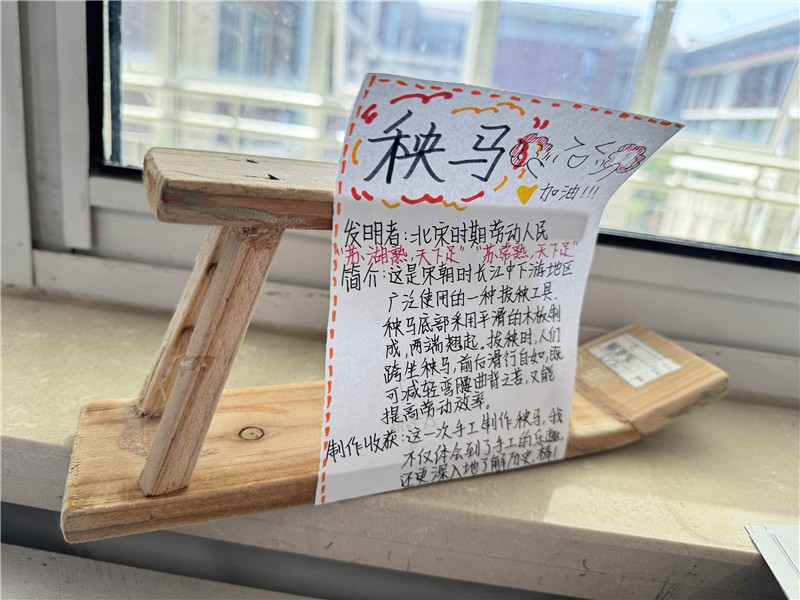 秧马
加油!!!
发明者:北宋时期劳动人民
"苏湖熟,天下足""苏常熟,天下足"
简介:这是宋朝时长江中下游地区
广泛使用的一种拔秧工具。
秧马底部采用平滑的木板制
成,两端翘起。拔秧时,人们
跨坐秧马,前后滑行自如,既
可减轻弯腰曲背之苦,又能
提高劳动效率。
制作收获:这一次手工制作秧马,我
不仅体会到了手工的乐趣,
还更深入地了解历史,棒!